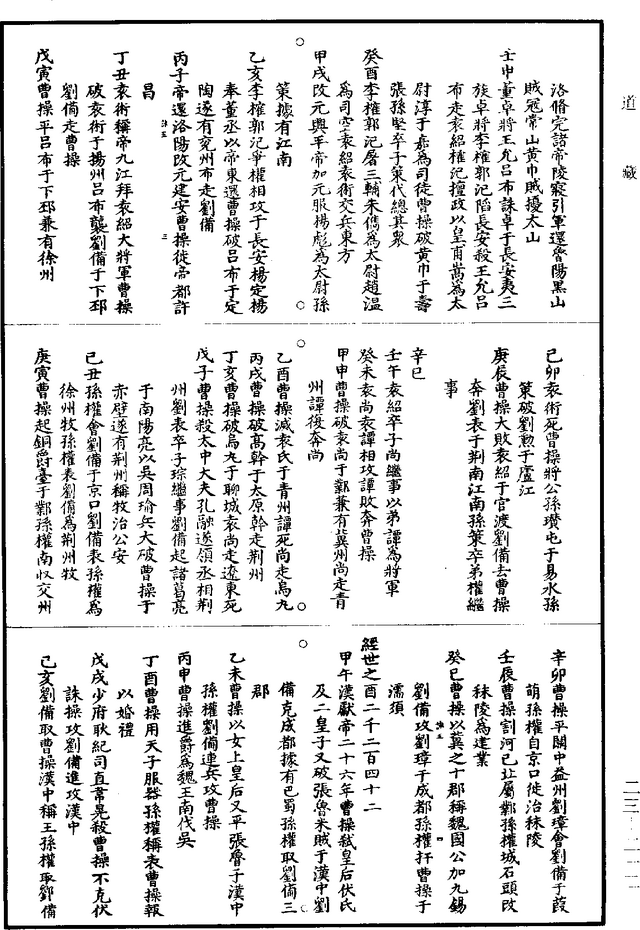 道藏
洛脩完諸帝陵寢引軍還魯陽黑山
賊寇常山黃巾賊擾太山
壬申董卓將王允呂布誅卓于長安夷三
族卓將李榷郭汜陷長安殺王允呂
布走袁紹榷汜擅政以皇甫嵩為太
尉淳于嘉為司徒曹操破黃巾于壽
張孫堅卒子策代總其眾
癸酉李榷郭汜屠三輔朱儁為太尉趙溫
為司空袁紹袁術交兵東方
甲戌改元興平帝加元服楊彪為太尉孫
策據有江南
乙亥李榷郭汜爭權相攻于長安楊定楊
奉董丞以帝東還曹操破呂布于定
陶遂有兗州布走劉備
丙子帝還洛陽改元建安曹操徙帝都許
昌
丁丑袁術稱帝九江拜袁紹大將軍曹操
破袁術于揚州呂布襲劉備于下邳
劉備走曹操
戊寅曹操平呂布于下邳兼有徐州
己卯袁術死曹操將公孫瓚屯于易水孫
策破劉勳于廬江
庚辰曹操大敗袁紹于官渡劉備去曹操
奔劉表于荊南江南孫策卒弟權繼
事
辛巳
壬午袁紹卒子尚繼事以弟譚為將軍
癸未袁尚袁譚相攻譚敗奔曹操
甲申曹操破袁尚于鄴兼有冀州尚走青
州譚復奔尚
乙酉曹操滅袁氏于青州譚死尚走烏九
丙戌曹操破高幹于太原幹走荊州
丁亥曹操破烏九于聊城袁尚走遼東死
戊子曹操殺太中大夫孔融遂領丞相荊
州劉表卒子琮繼事劉備起諸葛亮
于南陽亮以吳周瑜兵大破曹操于
赤壁遂有荊州稱牧治公安
己丑孫權會劉備于京口劉備表孫權為
徐州牧孫權表劉備為荊州牧
庚寅曹操起銅爵臺于鄴孫權南收交州
辛卯曹操平關中益州劉璋會劉備于葭
萌孫權自京口徙治秣陵
壬辰曹操割河已北屬鄴孫權城石頭改
秣陵為建業
癸巳曹操以冀之十郡稱魏國公加九錫
劉備攻劉璋于成都孫權扞曹操于
濡須
經世之酉二千二百四十二
甲午漢獻帝二十六年曹操弒皇后伏氏
及二皇子又破張魯米賊于漢中劉
備克成都據有巴蜀孫權取劉備三
郡
乙未曹操以女上皇后又平張魯于漢中
孫權劉備連兵攻曹操
丙申曹操進爵為魏王南伐吳
丁酉曹操用天子服器孫權稱表曹操報
以婚禮
戊戌少府耿紀司直韋晃殺曹操不克伏
誅操攻劉備進攻漢中
己亥劉備取曹操漢中稱王孫權取劉備